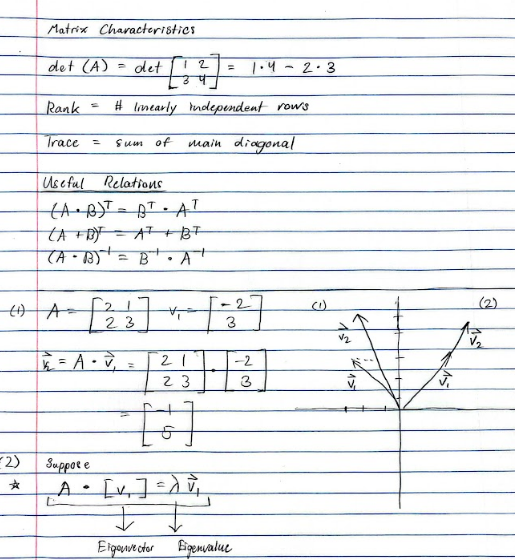 Matrix Characteristics
det (A) = det [1 2; 3 4] = 1·4 - 2·3
Rank = # linearly independent rows
Trace = sum of main diagonal
Useful Relations
(A · B)ᵀ = Bᵀ · Aᵀ
(A + B)ᵀ = Aᵀ + Bᵀ
(A · B)⁻¹ = B⁻¹ · A⁻¹
(1) A = [2 1; 2 3] v₁ = [-2; 3]
v⃗₂ = A · v⃗₁ = [2 1; 2 3] · [-2; 3]
= [-1; 5]
(1) (2)
v⃗₂ v⃗₂
v⃗₁ v⃗₁
(2) Suppose
☆ A · [v₁] = λ v⃗₁
Eigenvector Eigenvalue